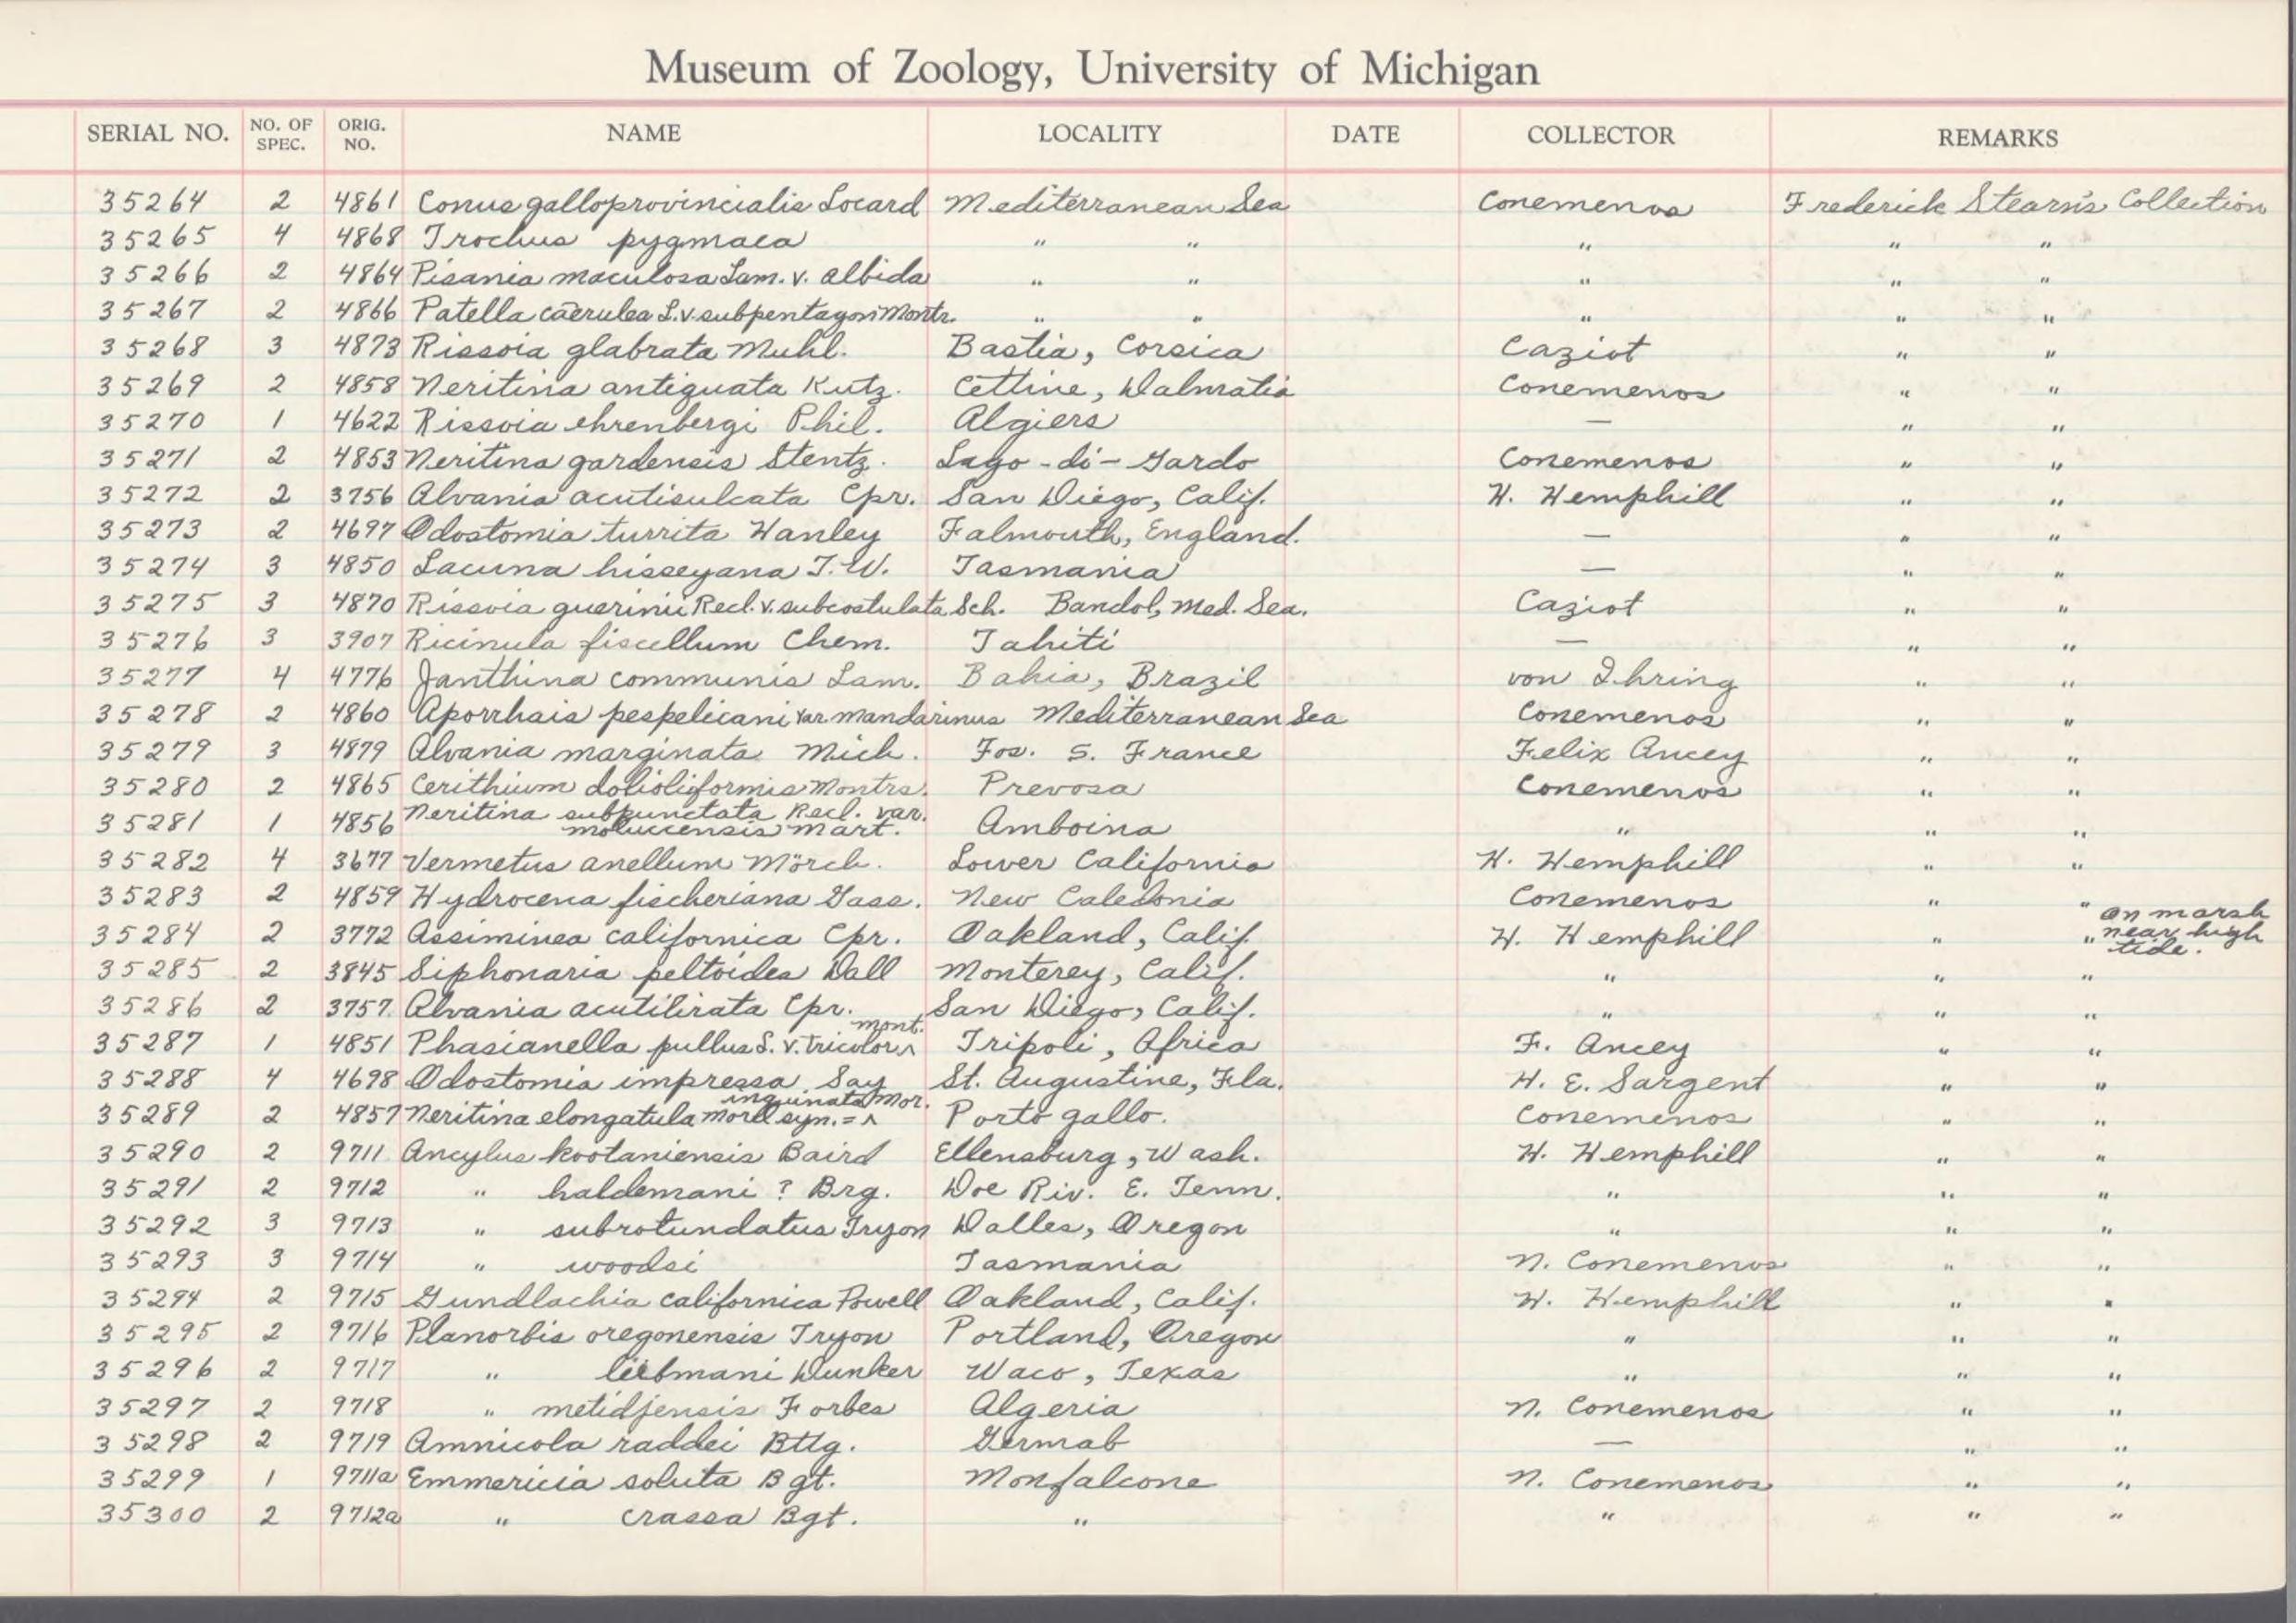 Museum of Zoology, University of Michigan
SERIAL NO. NO. OF SPEC. ORIG. NO. NAME LOCALITY DATE COLLECTOR REMARKS
35264 2 4861 Conus galloprovincialis Locard Mediterranean Sea Conemenos Frederick Stearns Collection
35265 4 4868 Trochus pygmaea " " " " "
35266 2 4864 Pisania maculosa Lam. v. albida " " " " "
35267 2 4866 Patella caerulea L. v. subpentagon Montr. " " " " "
35268 3 4873 Rissoia glabrata Muhl. Bastia, Corsica Caziot " "
35269 2 4858 Neritina antiquata Kutz. Cettine, Dalmatia Conemenos " "
35270 1 4622 Rissoia ehrenbergi Phil. Algiers — " "
35271 2 4853 Neritina gardensis Stentz. Lago-di-Gardo Conemenos " "
35272 2 3756 Alvania acutisulcata Cpr. San Diego, Calif. H. Hemphill " "
35273 2 4697 Odostomia turrita Hanley Falmouth, England. — " "
35274 3 4850 Lacuna hisseyana T.W. Tasmania — " "
35275 3 4870 Rissoia guerinii Recl. v. subcostulata Sch. Bandol, Med. Sea. Caziot " "
35276 3 3907 Ricinula fiscellum Chem. Tahiti — " "
35277 4 4776 Janthina communis Lam. Bahia, Brazil von Ihring " "
35278 2 4860 Aporrhais pespelicani var. mandarinus Mediterranean Sea Conemenos " "
35279 3 4879 Alvania marginata Mich. Fos. S. France Felix Ancey " "
35280 2 4865 Cerithium dolioliformis Montrs. Prevosa Conemenos " "
35281 1 4856 Neritina subpunctata Recl. var. moluccensis Mart. Amboina " " "
35282 4 3677 Vermetus anellum Mörch. Lower California H. Hemphill " "
35283 2 4859 Hydrocena fischeriana Gass. New Caledonia Conemenos " "
35284 2 3772 Assiminea californica Cpr. Oakland, Calif. H. Hemphill " " on marsh near high tide.
35285 2 3845 Siphonaria peltoides Dall Monterey, Calif. " " "
35286 2 3757 Alvania acutilirata Cpr. San Diego, Calif. " " "
35287 1 4851 Phasianella pullus L. v. tricolor ^ mont. Tripoli, Africa F. Ancey " "
35288 4 4698 Odostomia impressa Say St. Augustine, Fla. H. E. Sargent " "
35289 2 4857 Neritina elongatula Morel syn. = ^ inquinata Mor. Porto gallo. Conemenos " "
35290 2 9711 Ancylus kootaniensis Baird Ellensburg, Wash. H. Hemphill " "
35291 2 9712 " haldemani ? Brg. Doe Riv. E. Tenn. " " "
35292 3 9713 " subrotundatus Tryon Dalles, Oregon " " "
35293 3 9714 " woodsi Tasmania N. Conemenos " "
35294 2 9715 Gundlachia californica Powell Oakland, Calif. H. Hemphill " "
35295 2 9716 Planorbis oregonensis Tryon Portland, Oregon " " "
35296 2 9717 " liebmani Dunker Waco, Texas " " "
35297 2 9718 " metidjensis Forbes Algeria N. Conemenos " "
35298 2 9719 Amnicola raddei Bttg. Germab — " "
35299 1 9711a Emmericia soluta Bgt. Monfalcone N. Conemenos " "
35300 2 9712a " crassa Bgt. " " " "